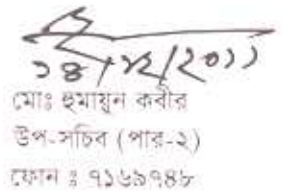 ১৪/১২/২০১১
মোঃ হুমায়ুন কবীর
উপ-সচিব (পার-২)
ফোন ঃ ৭১৬৯৭৪৮